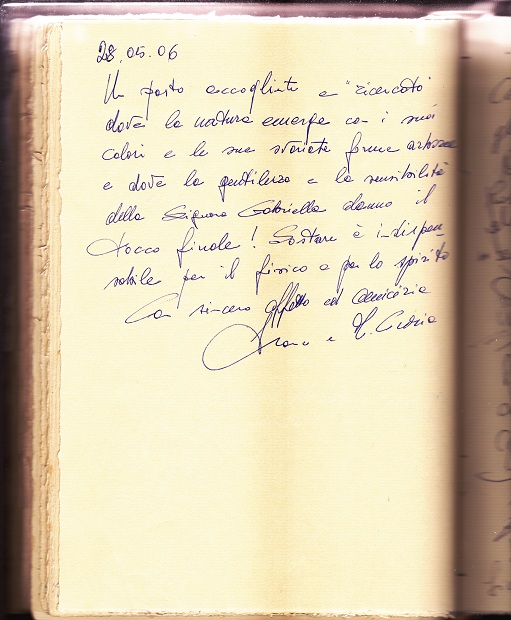 28.05.06
Un posto accogliente e "ricercato"
dove la natura emerge con i suoi
colori e le sue svariate forme
e dove la gentilezza e la sensibilità
della Signora Gabriella danno il
tocco finale! Sostare è indispen-
sabile per il fisico e per lo spirito
Con sincero affetto ed amicizia
e M.